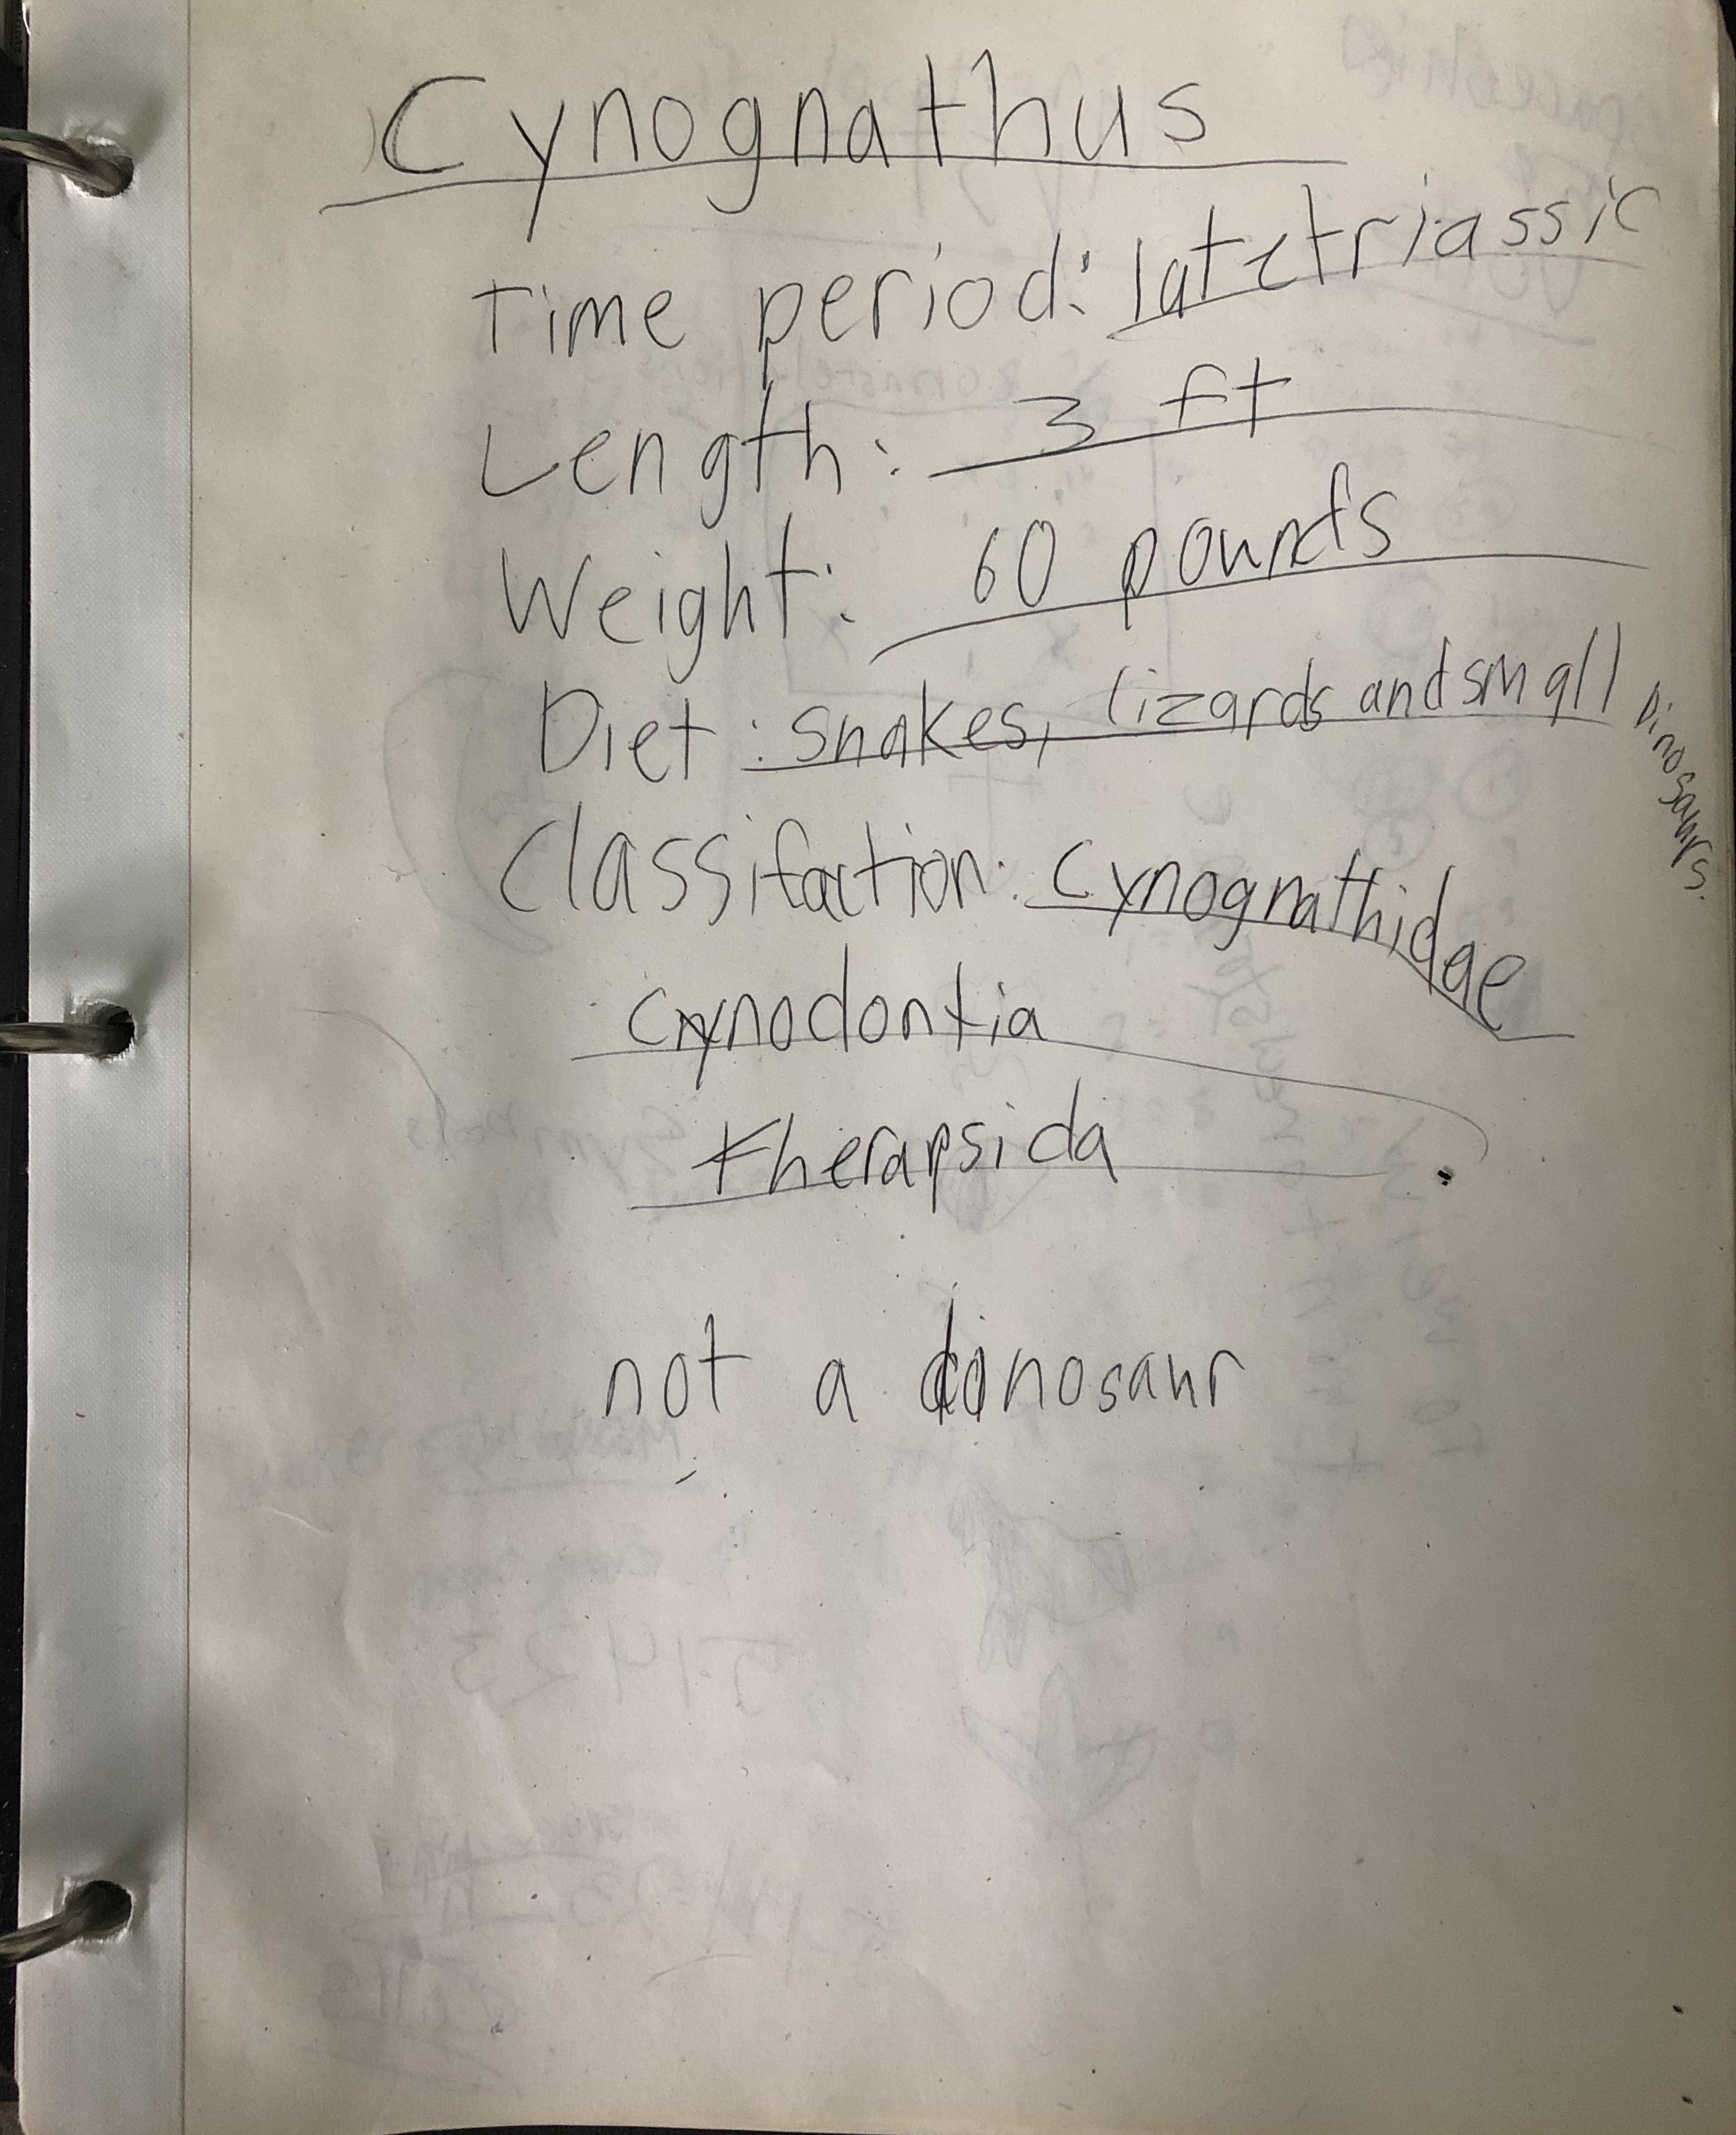 Cynognathus
Time period: late triassic
Length: 3 ft
Weight: 60 pounds
Diet: snakes, lizards and small Dinosaurs.
Classifaction: cynognathidae
cynodontia
therapsida
not a dinosaur